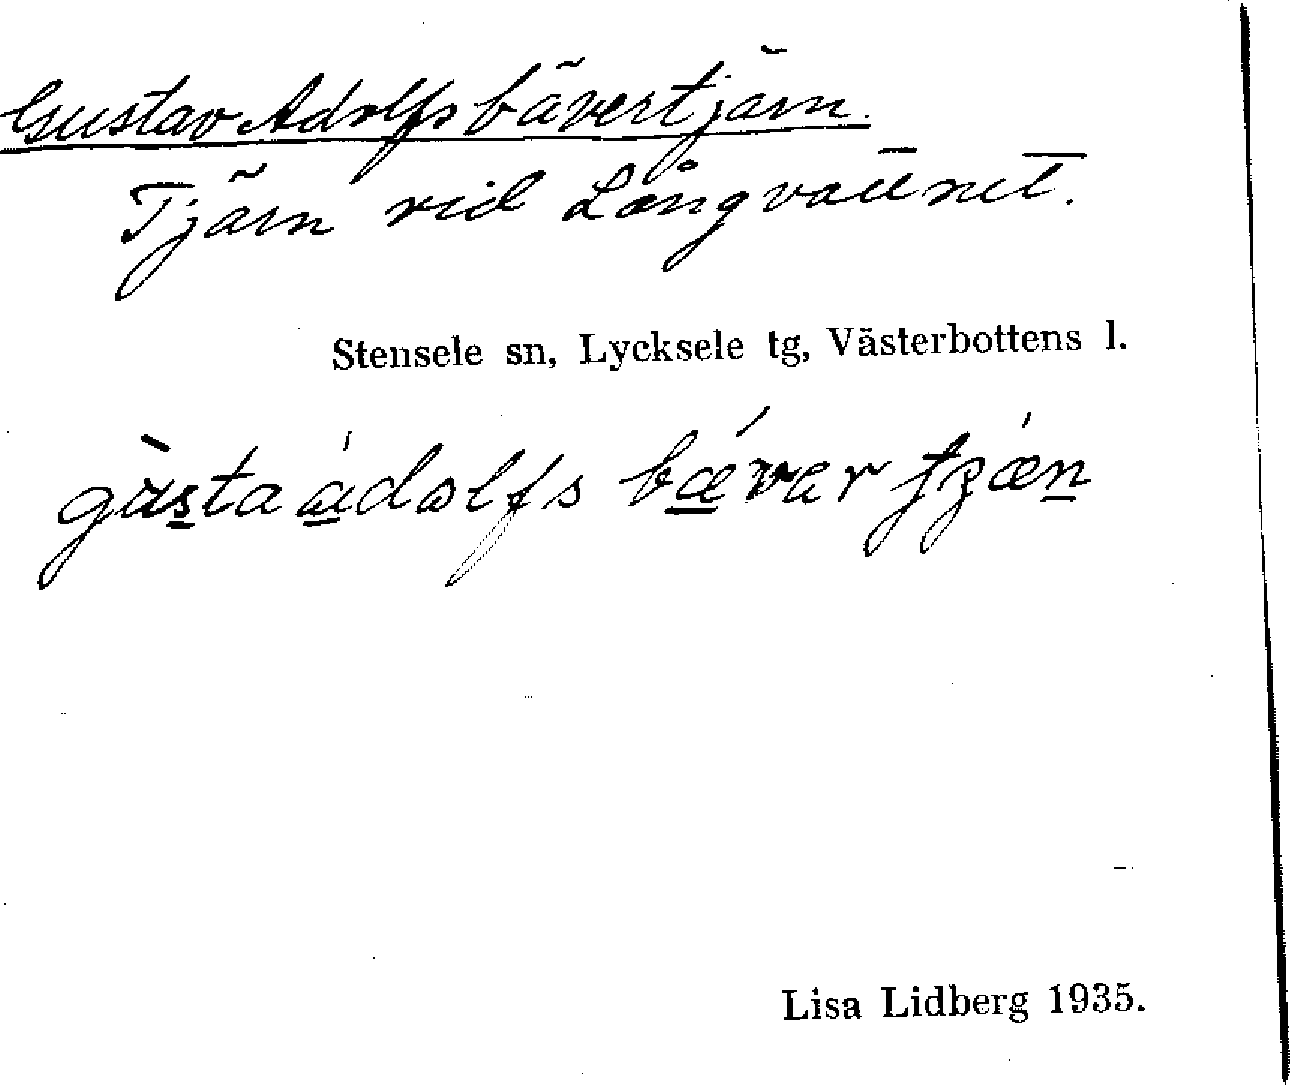 Gustav Adolfs bävertjärn.
Tjärn vid Långvattnet.
Stensele sn, Lycksele tg, Västerbottens l.
gùsta ádolfs bǽvar tjǽn
Lisa Lidberg 1935.